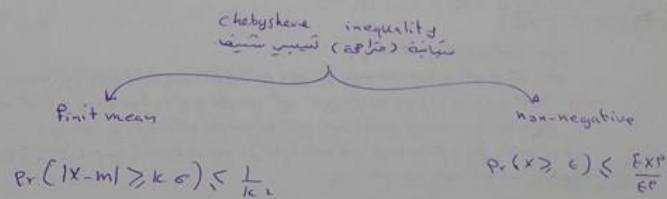 chebysheve inequality
متباينة (متراجحة) تشيبي شيف
finit mean
non-negative
Pr(|X-m| ≥ kσ) ≤ 1/k²
Pr(X ≥ ε) ≤ EX^p/ε^p